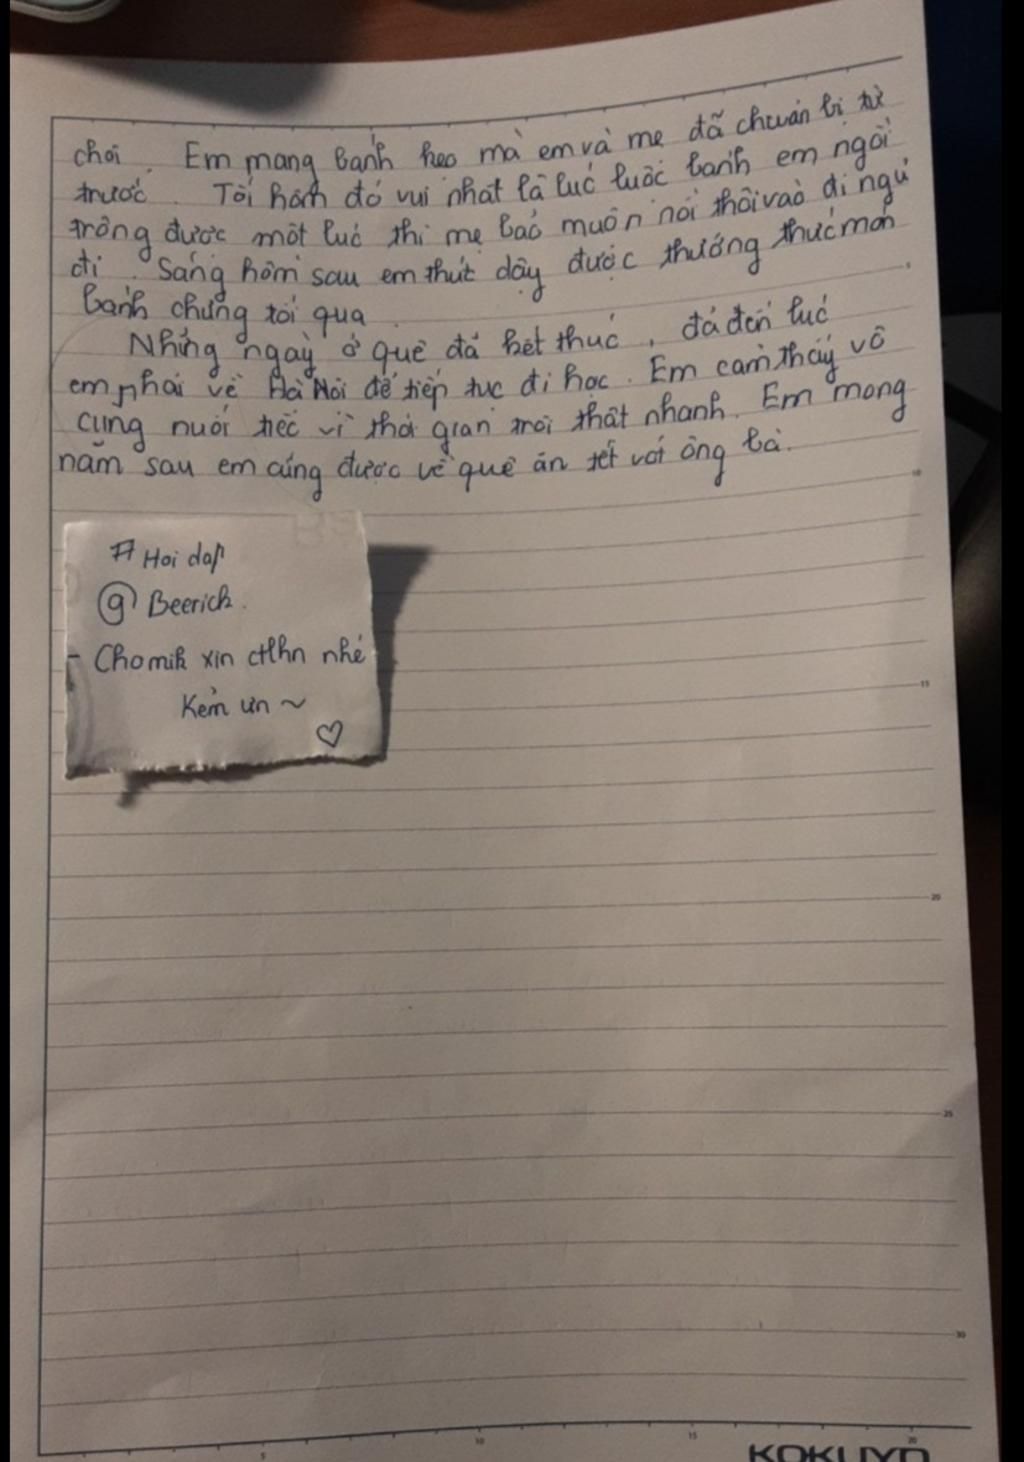 chơi. Em mang bánh kẹo mà em và mẹ đã chuẩn bị từ
trước. Tối hôm đó vui nhất là lúc luộc bánh em ngồi
trông được một lúc thì mẹ bảo muộn nói thôi vào đi ngủ
đi. Sáng hôm sau em thức dậy được thưởng thức món
bánh chưng tối qua.
Những ngày ở quê đã kết thúc, đã đến lúc
em phải về Hà Nội để tiếp tục đi học. Em cảm thấy vô
cùng nuối tiếc vì thời gian trôi thật nhanh. Em mong
năm sau em cũng được về quê ăn tết với ông bà.
# Hoi dap
@ Beerich.
- Cho mik xin ctlhn nhé
Kẻm ưn ~
♡
5
10
15
20
10
15
20
25
30
KOKUYO